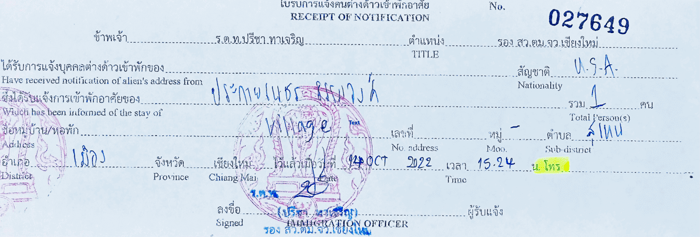 ใบรับการแจ้งคนต่างด้าวเข้าพักอาศัย
RECEIPT OF NOTIFICATION No. 027649
ข้าพเจ้า ร.ต.ท.ปรีชา ทาเจริญ ตำแหน่ง รอง สว.ตม.จว.เชียงใหม่
TITLE
ได้รับการแจ้งบุคคลต่างด้าวเข้าพักของ สัญชาติ U.S.A.
Have received notification of alien's address from Nationality
ซึ่งได้รับแจ้งการเข้าพักอาศัยของ รวม 1 คน
Which has been informed of the stay of Total Person(s)
ชื่อหมู่บ้าน/หอพัก Village เลขที่ หมู่ - ตำบล
Address No. address Moo. Sub-district
อำเภอ เมือง จังหวัด เชียงใหม่ ไว้แล้วเมื่อวันที่ 04 OCT 2022 เวลา 15.24 น. โทร
District Province Chiang Mai Date Time
ร.ต.ท.
ลงชื่อ (ปรีชา ทาเจริญ) ผู้รับแจ้ง
Signed IMMIGRATION OFFICER
รอง สว.ตม.จว.เชียงใหม่